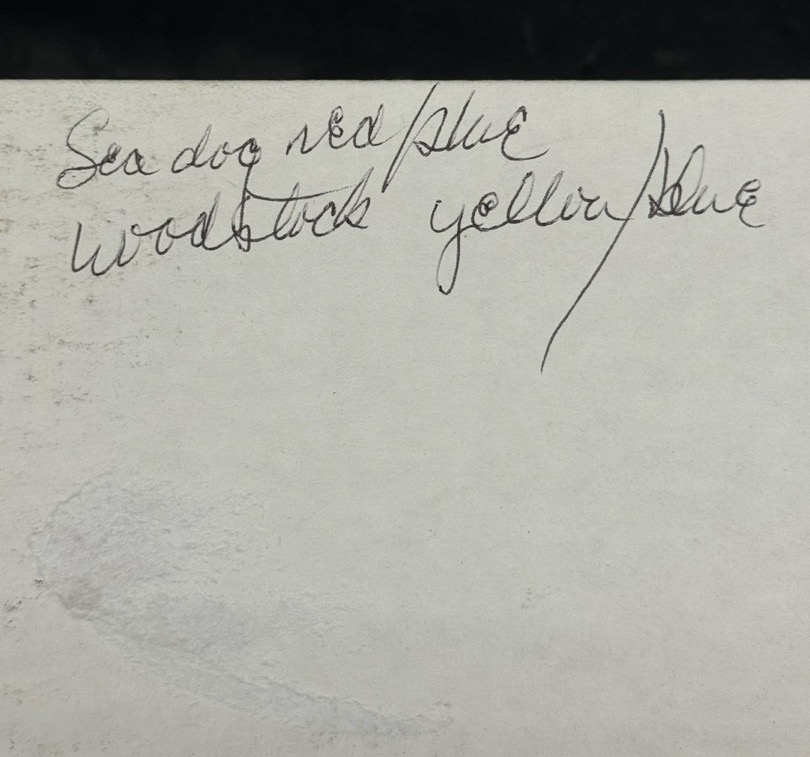 Sea dog red/blue
Woodstock yellow/blue